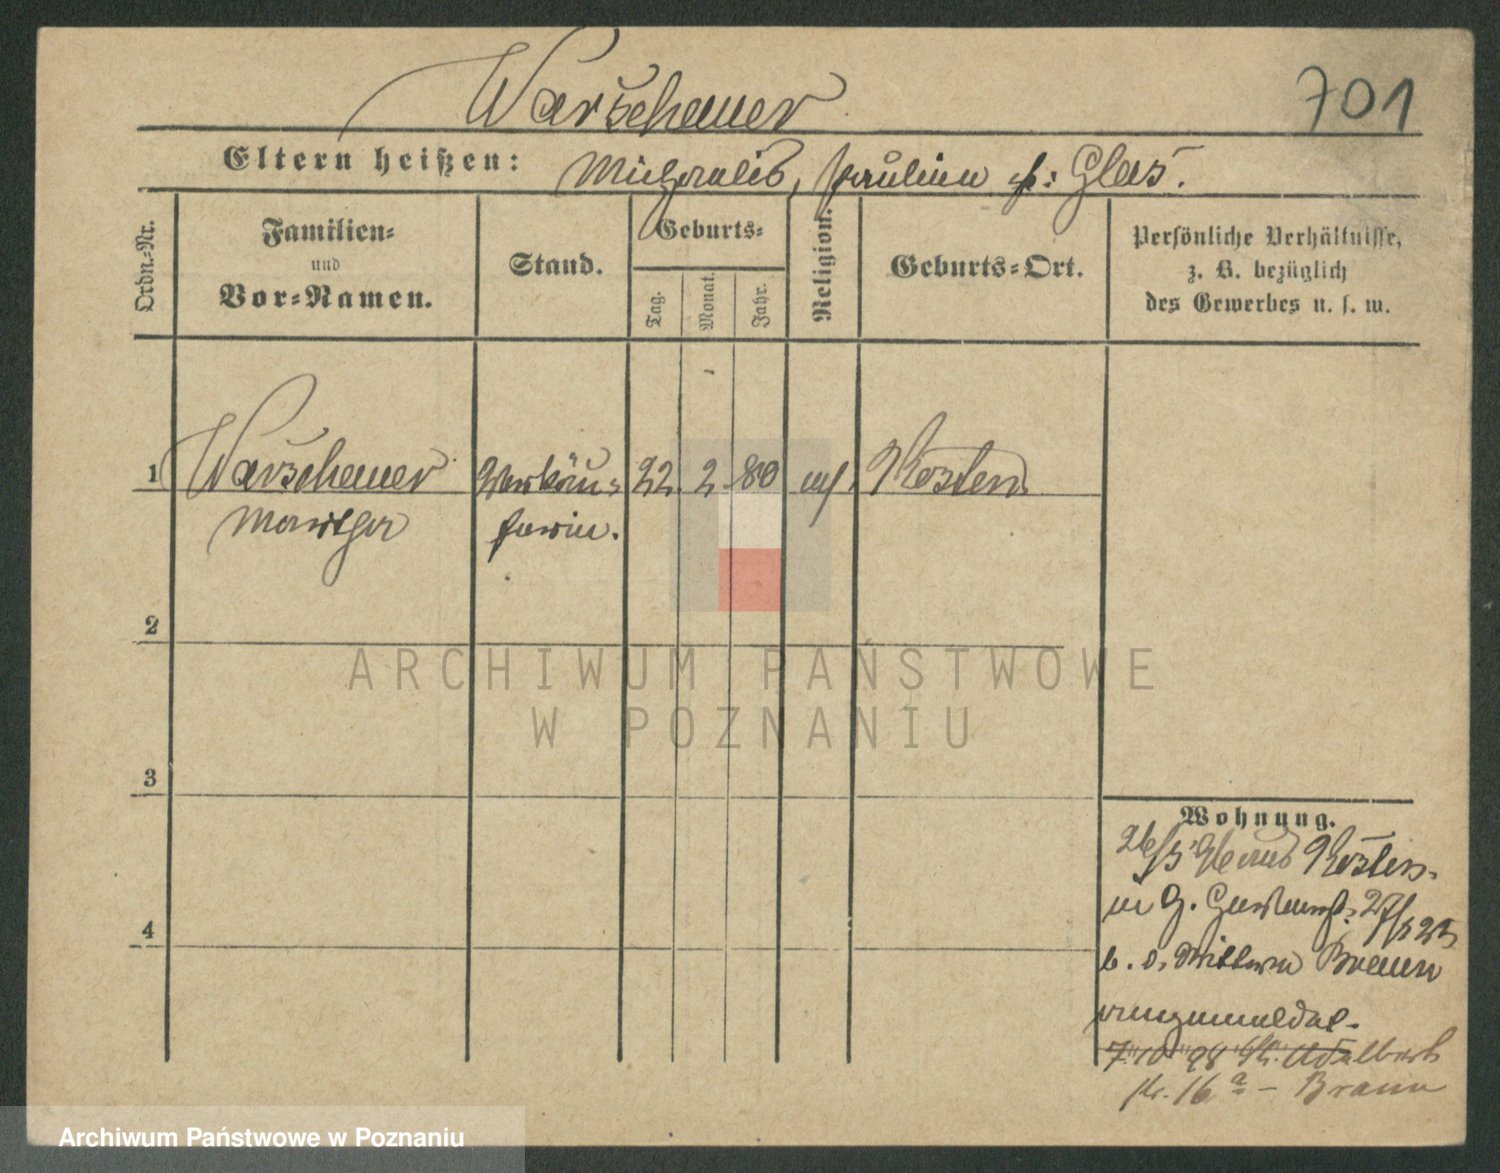 701
Warschauer
Eltern heißen: Michaelis, Pauline g: Glas.
Ordn.-Nr.
Familien- und Vor-Namen.
Stand.
Geburts-
Tag.
Monat.
Jahr.
Religion.
Geburts-Ort.
Persönliche Verhältnisse,
z. B. bezüglich
des Gewerbes u. s. w.
1 Warschauer Verkäu- 22. 2. 80 Kosten
Martha ferin.
2
3
4
Wohnung.
26/5 96 aus Kosten
27/5
b. d. Wittwe Braun
angemeldet.
7.10 98 St. Adalbert
str. 16 a - Braun
ARCHIWUM PAŃSTWOWE
W POZNANIU
Archiwum Państwowe w Poznaniu